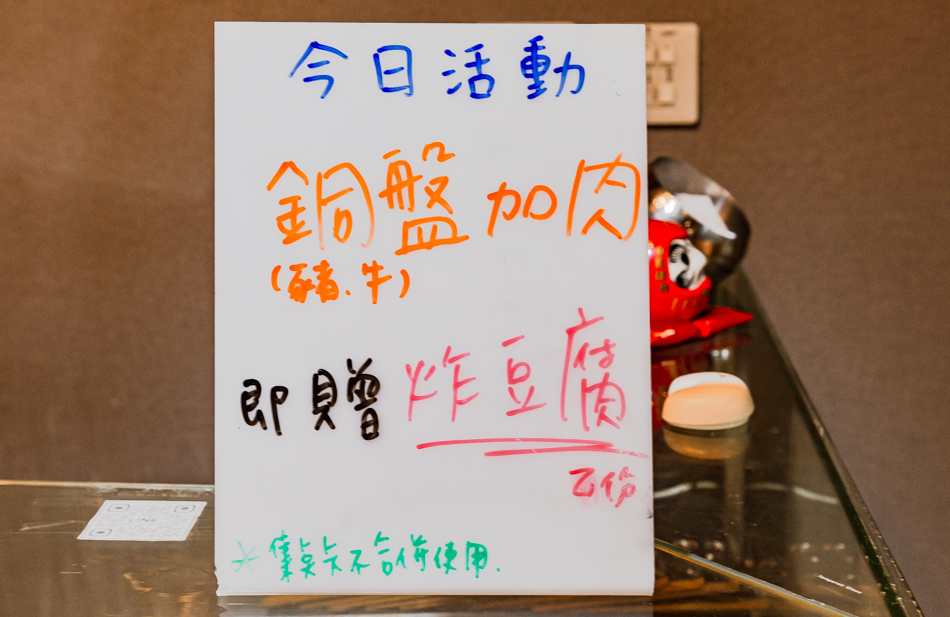 今日活動
銅盤加肉
(豬、牛)
即贈炸豆腐
乙份
*集点卡不合併使用.
LINE